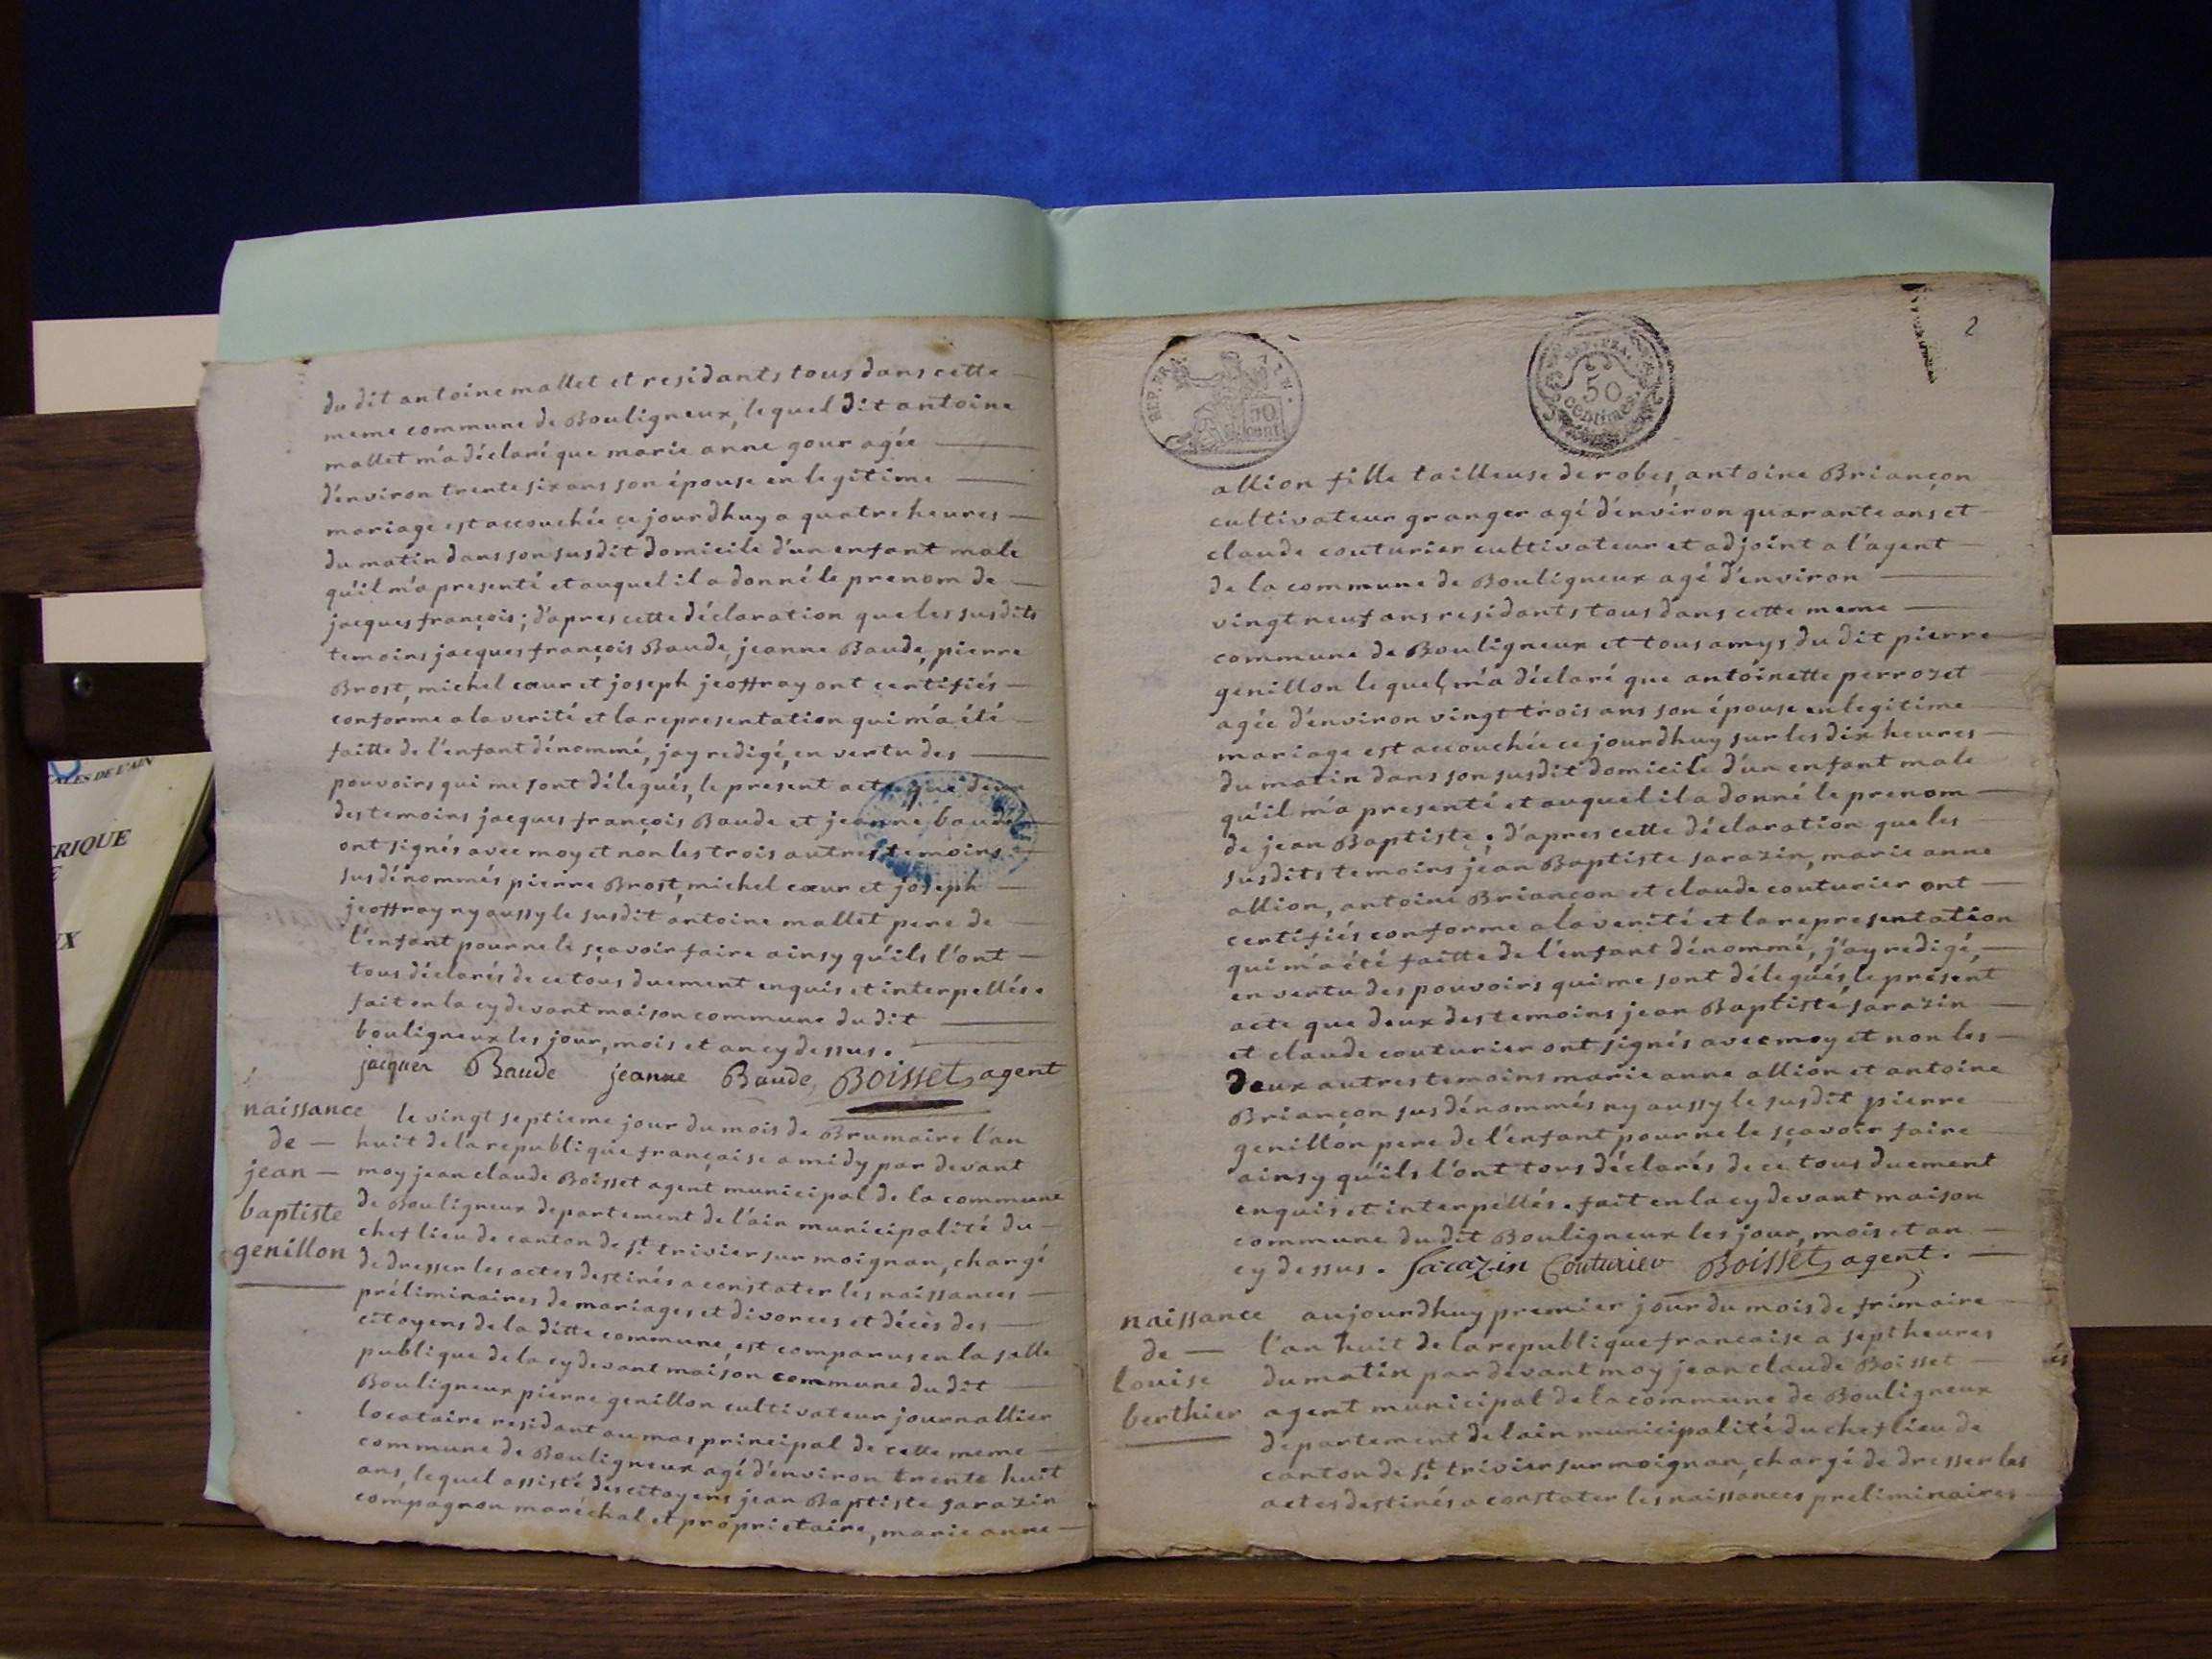 du dit antoine mallet et residants tous dans cette
meme commune de Bouligneux, lequel dit antoine
mallet m'a déclaré que marie anne gour agée
d'environ trente six ans son épouse en legitime
mariage est accouchée ce jourdhuy a quatre heures
du matin dans son susdit domicile d'un enfant male
qu'il m'a presenté et auquel il a donné le prenom de
jacques françois; d'apres cette déclaration que les susdits
temoins jacques françois Baude, jeanne Baude, pierre
Brost, michel cœur et joseph jeoffray ont certifiés
conforme a la verité et la representation qui m'a été
faitte de l'enfant dénommé, jay redigé, en vertu des
pouvoirs qui me sont délegués, le present acte que deux
des temoins jacques françois Baude et jeanne baude
ont signés avec moy et non les trois autres temoins
susdénommés pierre Brost, michel cœur et joseph
jeoffray ny aussy le susdit antoine mallet pere de
l'enfant pour ne le sçavoir faire ainsy qu'ils l'ont
tous déclarés de ce tous duement enquis et interpellés.
fait en la cy devant maison commune du dit
bouligneux les jour, mois et an cy dessus.
jacques Baude jeanne Baude, BOISSET, agent
naissance
de
jean
baptiste
genillon
le vingt septieme jour du mois de Brumaire l'an
huit de la republique française a midy par devant
moy jean claude Boisset agent municipal de la commune
de Bouligneux departement de l'ain municipalité du
chef lieu de canton de st. trivier sur moignan, chargé
de dresser les actes destinés a constater les naissances
préliminaires de mariages et divorces et décès des
citoyens de la ditte commune, est comparus en la salle
publique de la cy devant maison commune du dit
Bouligneux pierre genillon cultivateur journallier
locataire residant au mas principal de cette meme
commune de Bouligneux agé d'environ trente huit
ans, lequel assisté des citoyens jean Baptiste sarazin
compagnon maréchal et proprietaire, marie anne
2
REP. FRA.
50
cent
REP. FRA.
50
centimes.
allion fille tailleuse de robes, antoine Briançon
cultivateur granger agé d'environ quarante ans et
claude couturier cultivateur et adjoint a l'agent
de la commune de Bouligneux agé d'environ
vingt neuf ans residants tous dans cette meme
commune de Bouligneux et tous amys du dit pierre
genillon lequel, m'a déclaré que antoinette perrozet
agée d'environ vingt trois ans son épouse en legitime
mariage est accouchée ce jourdhuy sur les dix heures
du matin dans son susdit domicile d'un enfant male
qu'il m'a presenté et auquel il a donné le prenom
de jean Baptiste; d'apres cette déclaration que les
susdits temoins jean Baptiste sarazin, marie anne
allion, antoine Briançon et claude couturier ont
certifiés conforme a la verité et la representation
qui m'a été faitte de l'enfant dénommé, j'ay redigé,
en vertu des pouvoirs qui me sont délegués, le présent
acte que deux des temoins jean Baptiste sarazin
et claude couturier ont signés avec moy et non les
deux autres temoins marie anne allion et antoine
Briançon susdénommés ny aussy le susdit pierre
genillon pere de l'enfant pour ne le sçavoir faire
ainsy qu'ils l'ont tous déclarés de ce tous duement
enquis et interpellés. fait en la cy devant maison
commune du dit Bouligneux les jour, mois et an
cy dessus. Sarazin Couturier BOISSET, agent.
naissance
de
louise
berthier
aujourdhuy premier jour du mois de frimaire
l'an huit de la republique francaise a sept heures
du matin par devant moy jean claude Boisset
agent municipal de la commune de Bouligneux
departement de lain municipalité du chef lieu de
canton de st. trivier sur moignan, chargé de dresser les
actes destinés a constater les naissances preliminaires
ALES DE L'AIN
RIQUE